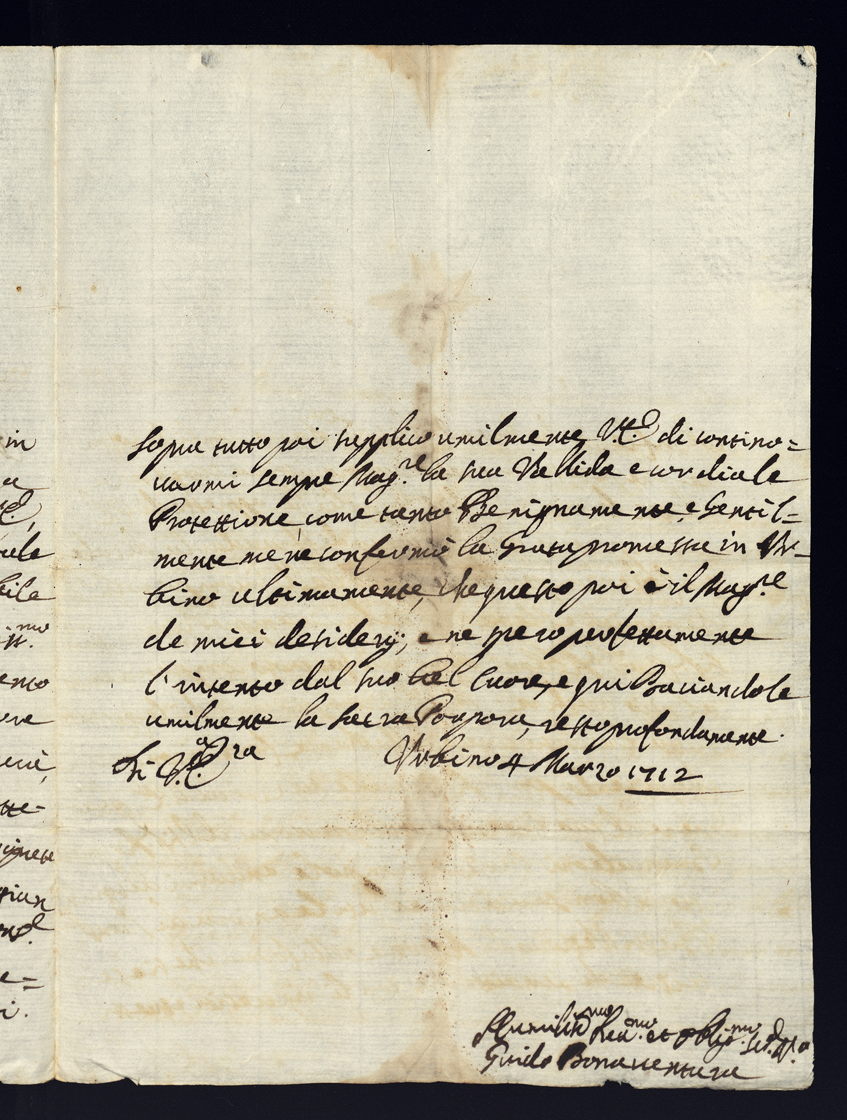 in
a
sopra tutto poi supplico umilmente V.E. di contino=
uarmi sempre Mag.re la sua Vallida e cordiale
Protettione, come tanto Benignamente, e Gentil=
mente me ne confermò la Grata promessa in Vr=
bino ultimamente, che questo poi è il Mag.re
de miei desiderij, e ne spero perfettamente
l'intento dal suo bel Cuore, e qui Baciandole
umilmente la Sacra Porpora, resto profondamente
Di V.
Vrbino 4 Marzo 1712
Humiliss.mo et oblig.mo
Guido Bonaventura